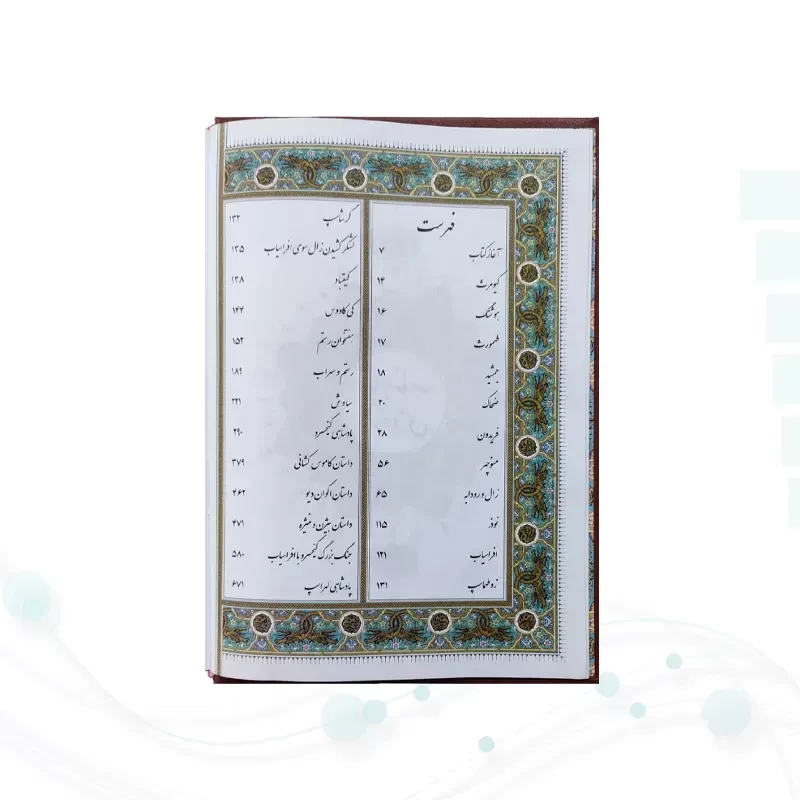 فهرست
آغاز کتاب ۷
کیومرث ۱۴
هوشنگ ۱۶
طهمورث ۱۷
جمشید ۱۸
ضحاک ۲۰
فریدون ۲۸
منوچهر ۵۶
زال و رودابه ۶۵
نوذر ۱۱۵
افراسیاب ۱۲۱
زو طهماسپ ۱۳۱
گرشاسپ ۱۳۲
لشگر کشیدن زال سوی افراسیاب ۱۳۵
کیقباد ۱۳۸
کی کاووس ۱۴۴
هفتخوان رستم ۱۵۲
رستم و سهراب ۱۸۹
سیاوش ۲۲۱
پادشاهی کیخسرو ۲۹۰
داستان کاموس کشانی ۳۷۹
داستان اکوان دیو ۴۶۲
داستان بیژن و منیژه ۴۷۱
جنگ بزرگ کیخسرو با افراسیاب ۵۸۰
پادشاهی لهراسپ ۶۷۱